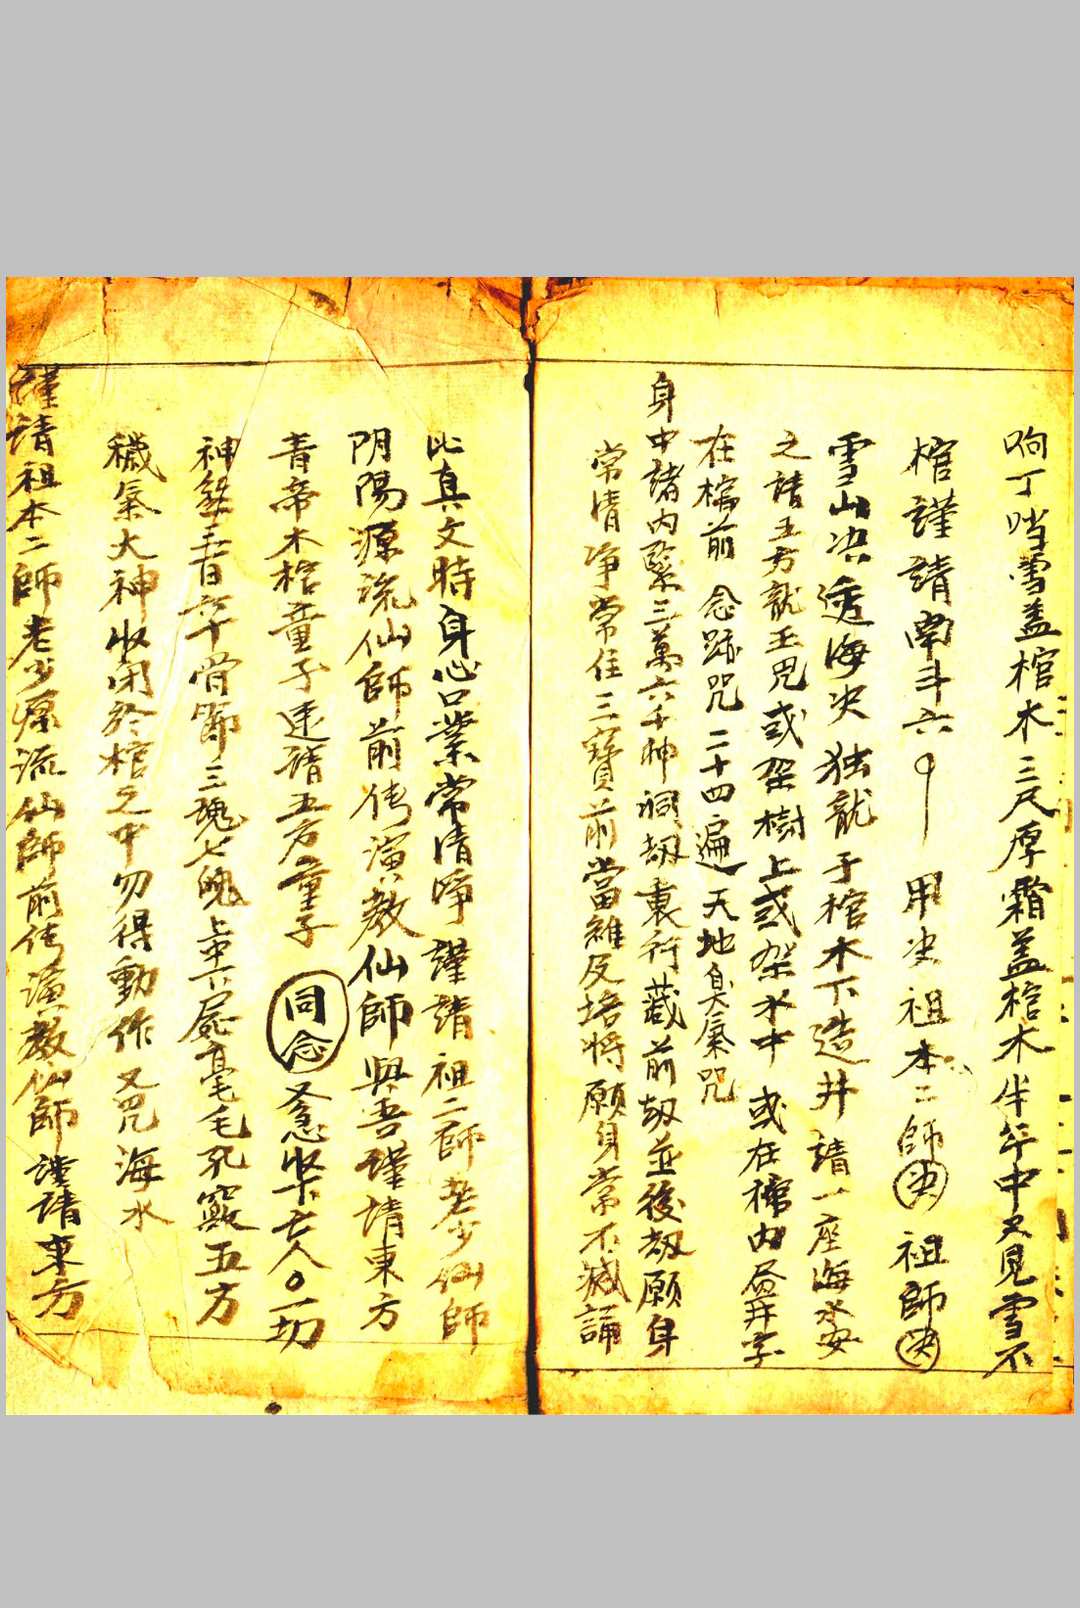 响丁当雪盖棺木三尺厚霜盖棺木半年中又見雪不
棺謹請南斗六 用决祖本二師决祖師决
雪山决透海决独龍子棺木下造井請一座海水安
之請五方龍王咒或架樹上或架水中或在棺内層井字
在棺前念跡咒二十四遍天地臭氣咒
身中諸内緊三萬六千神祠刼裏行藏前刼並後刼願身
常情净常住三寶前當雖反塔將願身常不滅誦
此真文時身心口業常清净謹請祖二師老少仙師
阴陽源流仙師前傳演教仙師與吾謹請東方
青帝木棺童子速請五方童子同念又急收下亡人○一切
神煞三百六十骨節三魂七魄上中下屍毫毛孔竅五方
穢氣大神收闭於棺之中勿得動作又咒海水
謹請祖本二師老少源流仙師前传演教仙師謹請東方